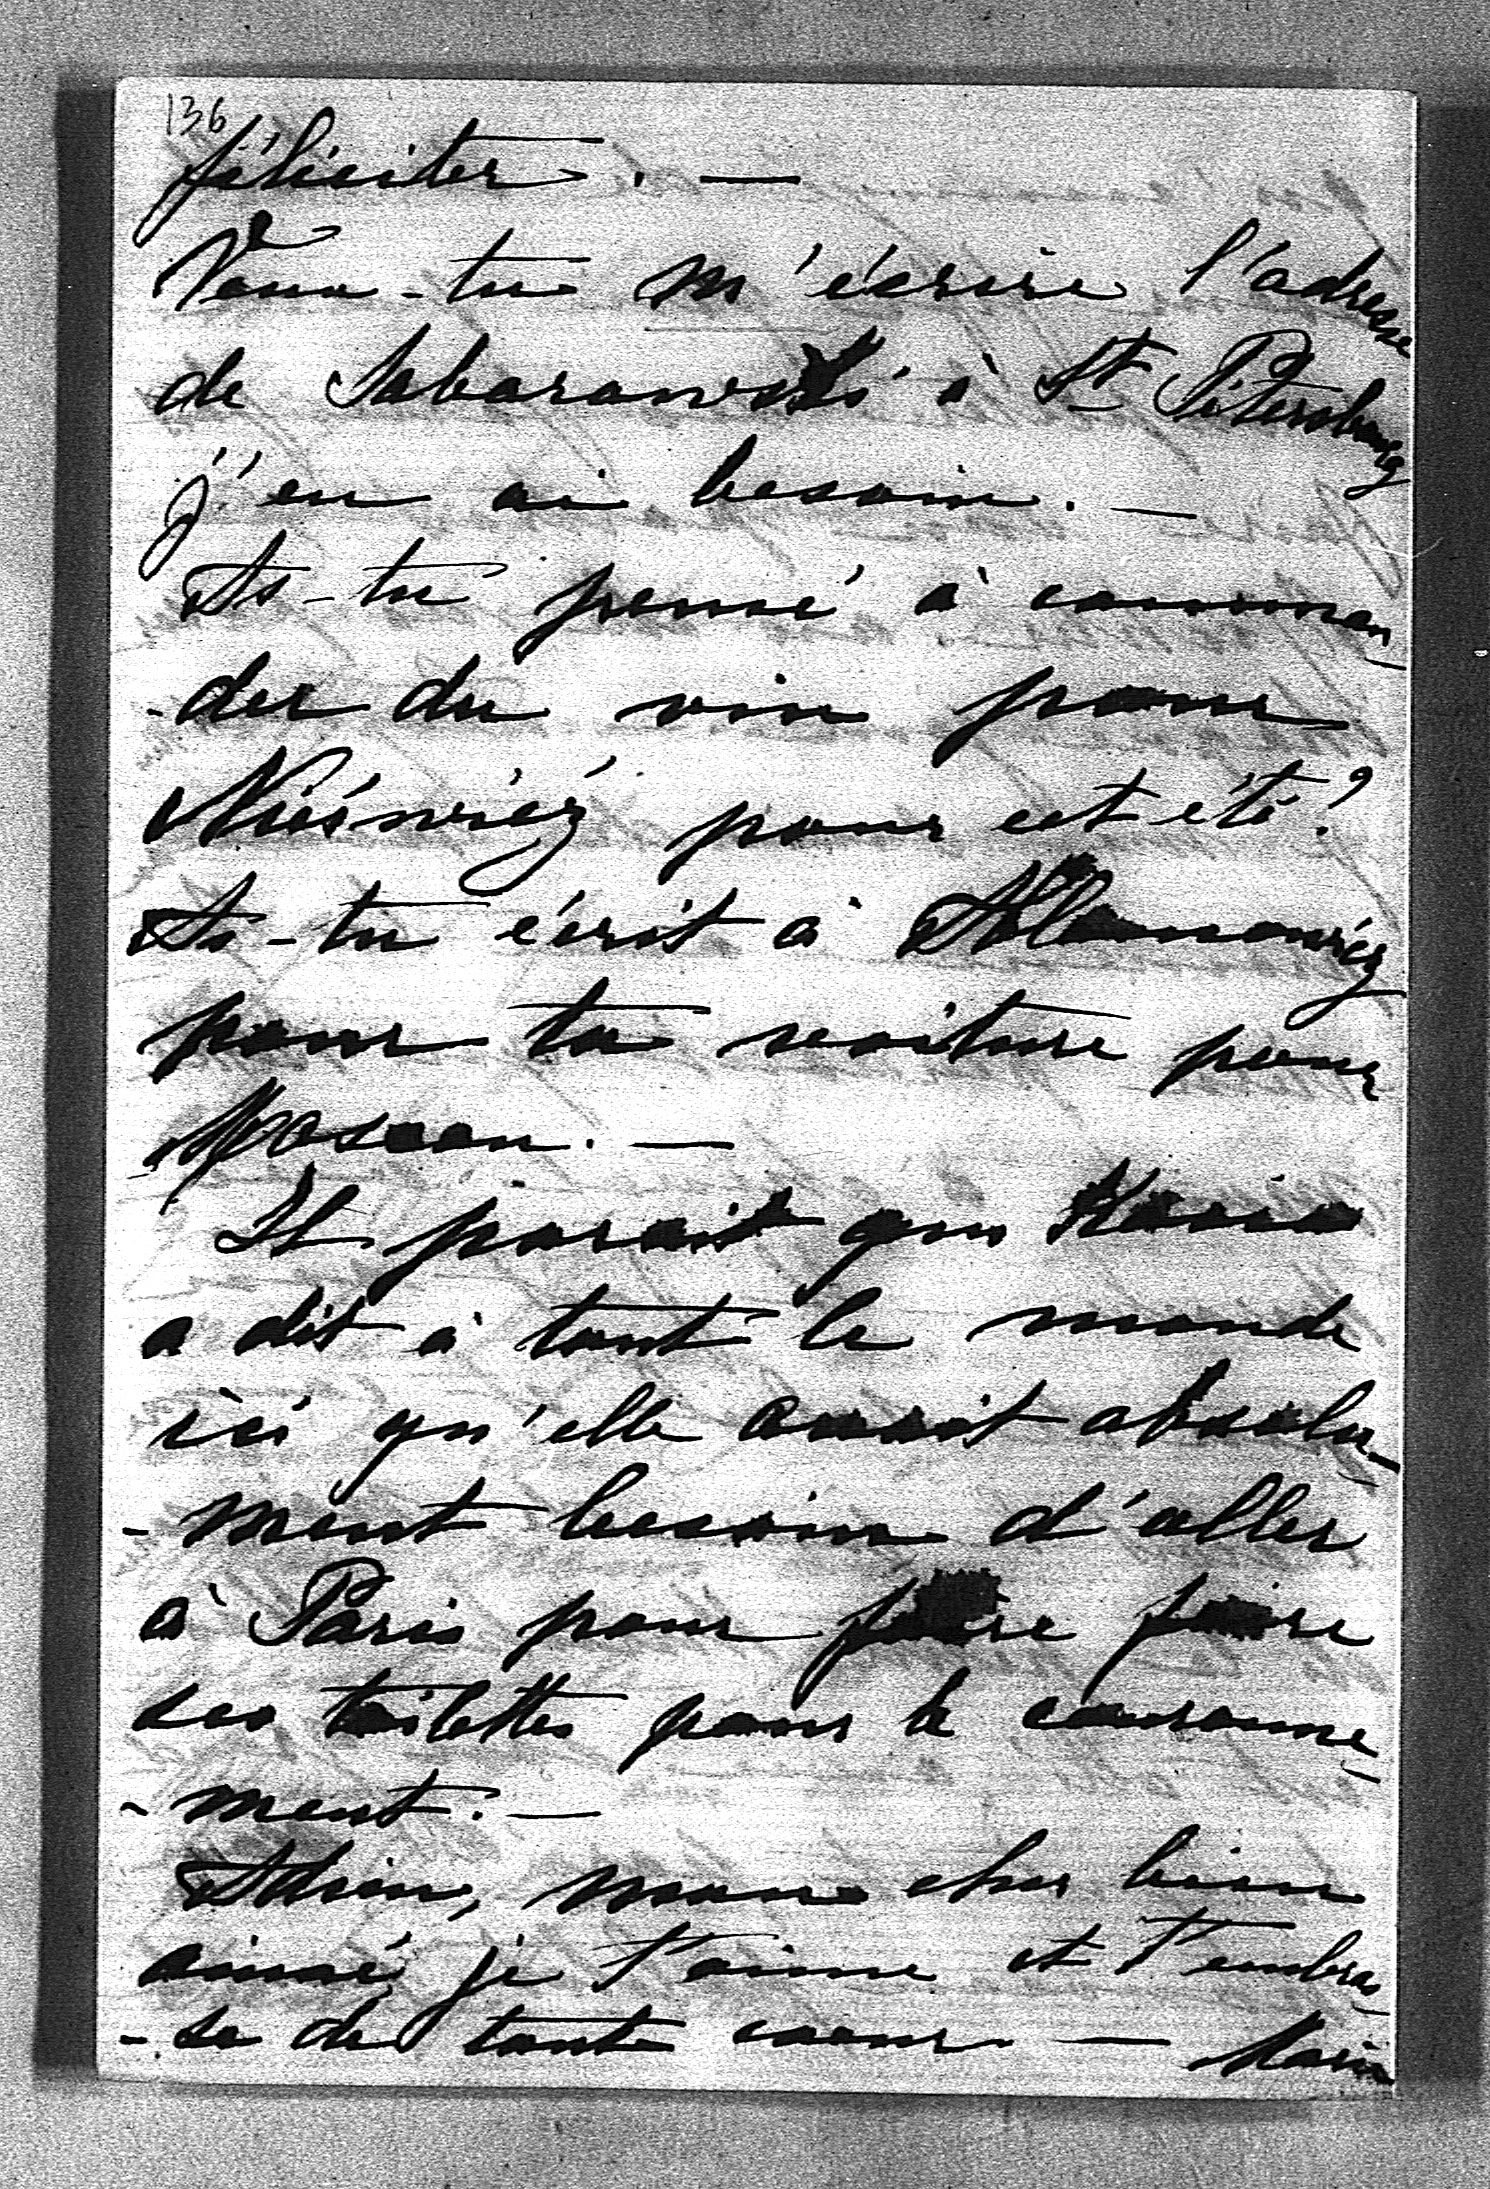 136
féliciter. —
Veux-tu m'écrire l'adresse
de Sabaranski à St Pétersbourg
j'en ai besoin. —
As-tu pensé à comman-
-der du vin pour
Nieśwież pour cet été?
As-tu écrit à Adamowicz
pour ta voiture pour
Moscou. —
Il parait que Kasia
a dit à tout le monde
ici qu'elle avait absolu-
-ment besoin d'aller
à Paris pour faire faire
ses toilettes pour le couronne-
-ment. —
Adieu, mon cher bien
aimé, je t'aime et t'embras-
-se de tout coeur — Marie